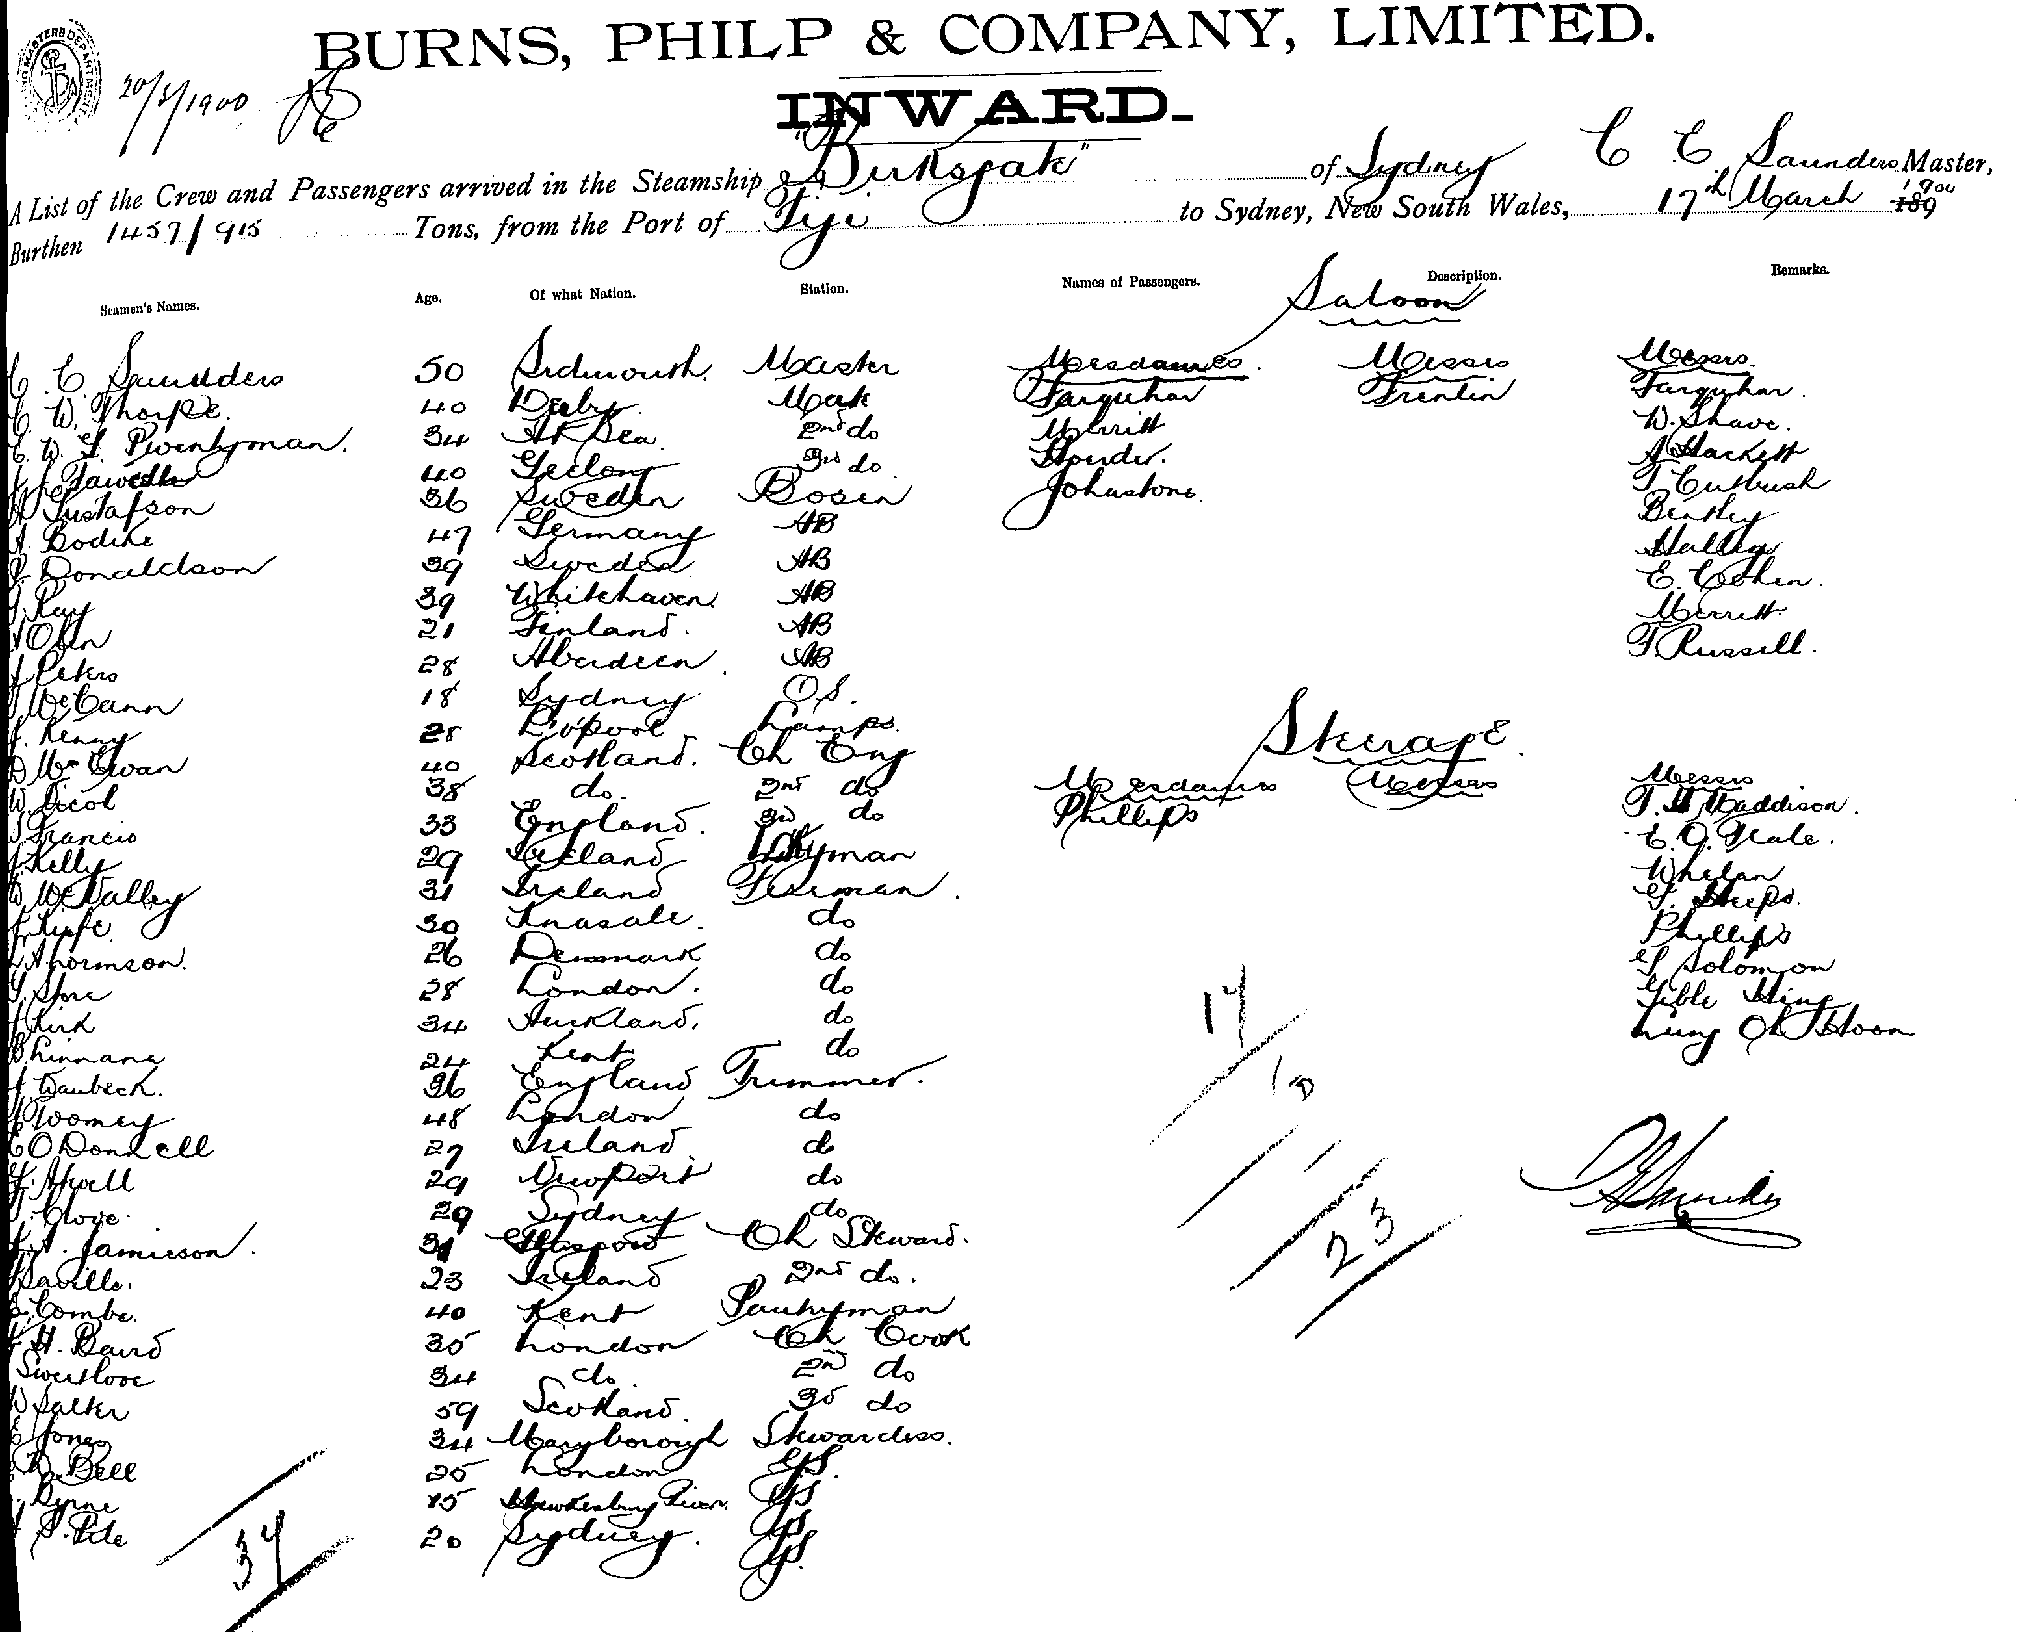 BURNS, PHILP & COMPANY, LIMITED.
INWARD.
20/3/1900
A List of the Crew and Passengers arrived in the Steamship "Birksgate" of Sydney C C Saunders Master,
Burthen 1457/915 Tons, from the Port of Fiji to Sydney, New South Wales, 17th March 1900
Seamen's Names. Age. Of what Nation. Station. Names of Passengers. Description. Remarks.
Saloon
C. C. Saunders 50 Sidmouth. Master Mesdames. Messrs Messrs
C. W. Thorpe. 40 Derby. Mate Farquhar Trentin Farquhar.
E. W. G. Twentyman. 34 At Sea. 2nd do Merritt W. Shave.
40 Geelong 3rd do Hackett
Gustafson 36 Sweden Bosen Johnstone. T Cutbush
Bodine 47 Germany AB Bentley
Donaldson 39 Sweden AB
Ray 39 Whitehaven. AB E. Cohen.
21 Finland. AB Merritt
J Peters 28 Aberdeen. AB T Russell.
McCann 18 Sydney O.S.
J. Kenny 28 L'pool Lamps.
Steerage
D McEwan 40 Scotland. Ch Eng Mesdames Messrs Messrs
W. Nicol 38 do. 2nd do Phillips Maddison.
Francis 33 England. 3rd do
J. Kelly 29 Ireland Whelan
W McNalley 31 Ireland Fireman.
30 Kinsale. do Phillips
Thormson. 26 Denmark do G Solomon
28 London. do
J Kirk 34 Auckland. do
Linnane 24 Kent do
36 England Trimmer.
Twoomey 48 London do
O'Donnell 27 Ireland. do
29 Newport do
29 Sydney do
Jamieson. 31 Glasgow Ch Steward.
Saville. 23 Ireland 2nd do.
Combe. 40 Kent Pantryman
H. Baird 35 London Ch Cook
Sweetlove 34 do. 2nd do
W Salter 59 Scotland. 3rd do
E Jones 34 Maryborough Stewardess.
Bell 25 London GS.
Byrne 15 Hawkesbury River. GS
20 Sydney. GS
GS.
17
23
37